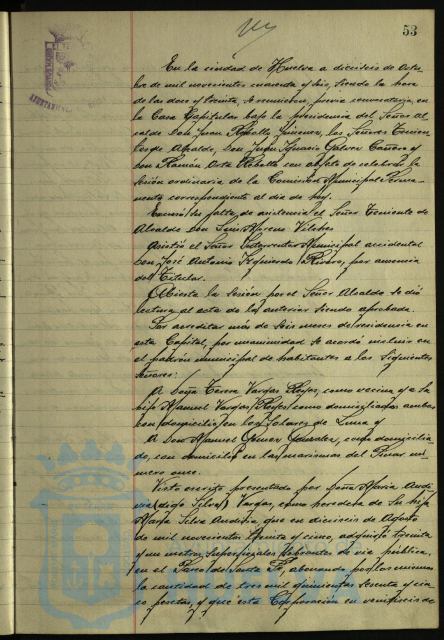 53
En la ciudad de Huelva a dieciseis de Octu-
bre de mil novecientos cuarenta y seis, siendo la hora
de las doce y treinta, se reunieron, previa convocatoria, en
la Casa Capitular bajo la presidencia del Señor Al-
calde Don Juan Rebollo Jimenez, los Señores Tenien-
tes de Alcalde, Don Juan Ignacio Galvez Cañero y
Don Ramón Orta Rebollo con objeto de celebrar la
Sesión ordinaria de la Comisión Municipal Perma-
nente correspondiente al dia de hoy.
Excusó su falta de asistencia el Señor Teniente de
Alcalde Don Luis Moreno Vilches
Asistió el Señor Interventor Municipal accidental
Don José Antonio Izquierdo Rivero, por ausencia
del Titular.
Abierta la Sesión por el Señor Alcalde se dió
lectura al acta de la anterior siendo aprobada.
Por acreditar más de seis meses de residencia en
esta Capital, por unanimidad se acordó incluir en
el padrón municipal de habitantes a los siguientes
Señores:
A Doña Teresa Vargas Rojas, como vecina y a su
hijo Manuel Vargas Rojas como domiciliado ambos
con domicilio en los Solares de Luna y
A Don Manuel, como domicilia-
do, con domicilio en las marismas del Pinar nú-
mero once.
Visto escrito presentado por Doña Maria Audi-
via (digo Silva) Vargas, como heredera de su hija
Maria Silva Audivia, que en dieciseis de Agosto
de mil novecientos treinta y cinco, adquirió treinta
y un metros superficiales sobrantes de via pública,
en el Paseo de Santa Fé, abonando por los mismos
la cantidad de tres mil quinientas sesenta y cin-
co pesetas, y que esta Corporación en veintiseis de